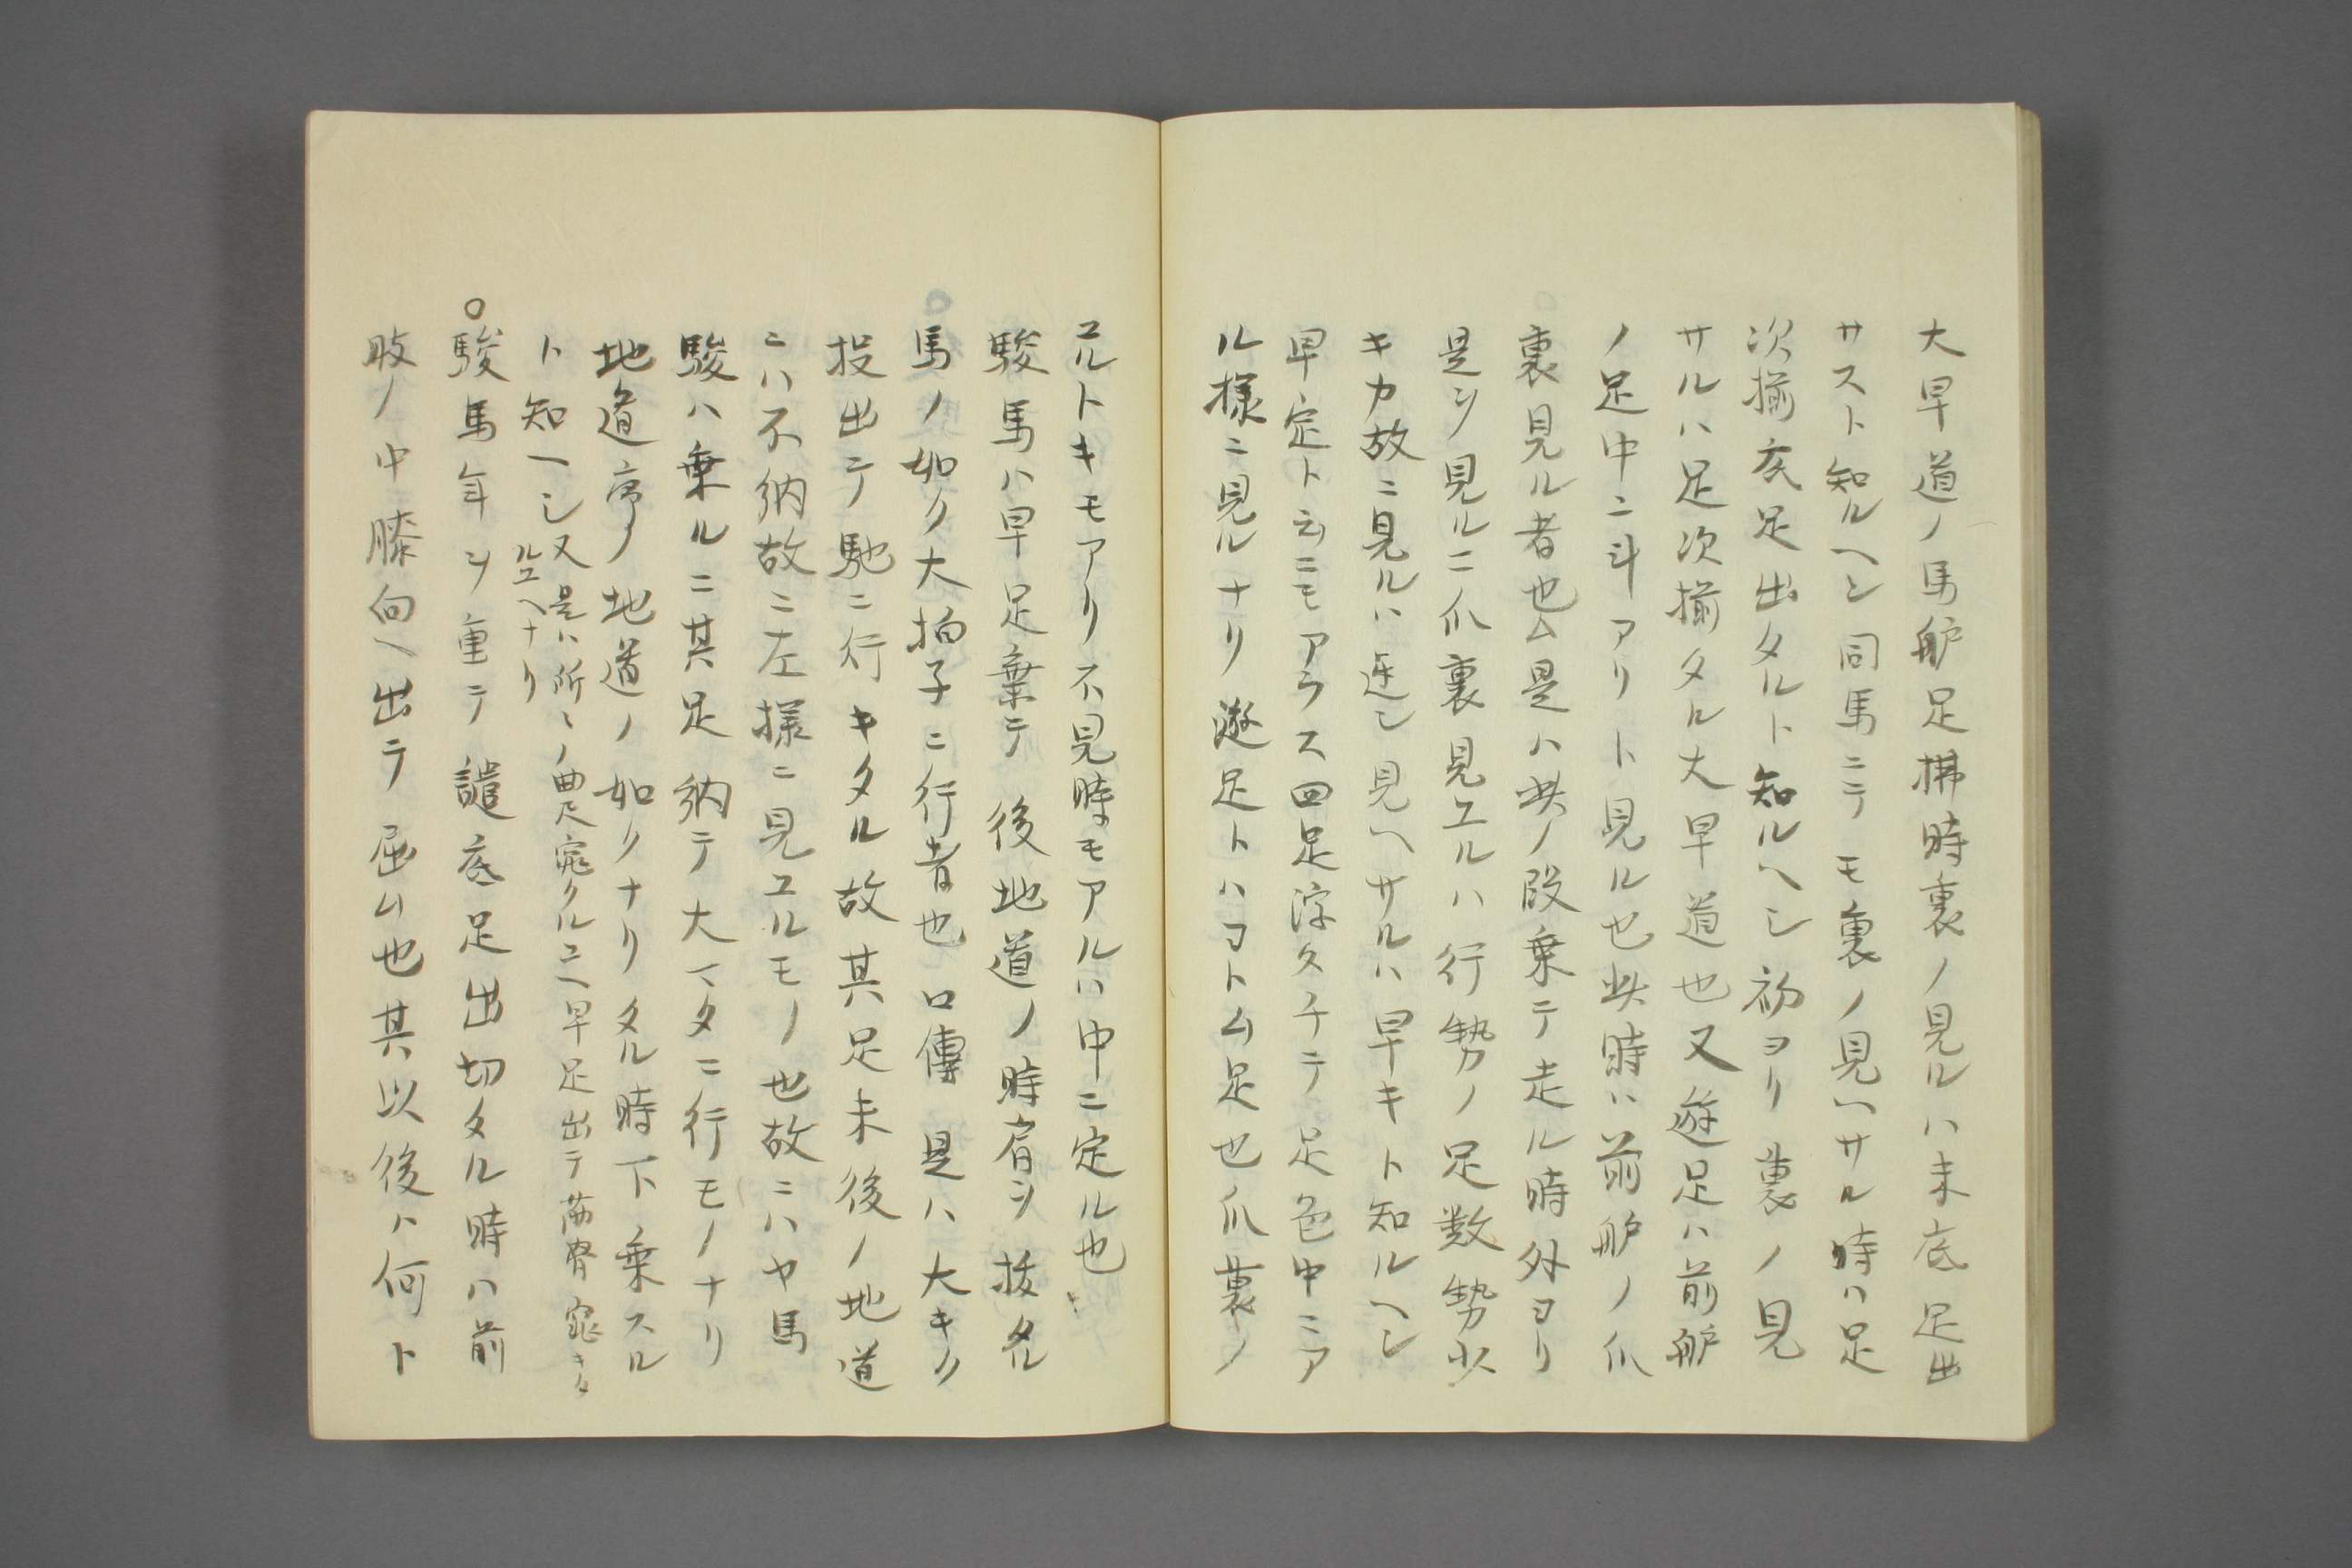 大早道ノ馬舮足拂時裏ノ見ルハ未底足出
サスト知ルヘシ同馬ニテモ裏ノ見ヘサル時ハ足
次揃底足出タルト知ルヘシ初ヨリ裏ノ見
サルハ足次揃タル大早道也又遊足ハ前舮
ノ足中ニ斗アリト見ル也此時ハ前舮ノ爪
裏見ル者也是ハ此ノ段乗テ走ル時外ヨリ
是ヲ見ルニ爪裏見ユルハ行勢ノ足数勢少
キカ故ニ見ルハ遅シ見ヘサルハ早キト知ルヘシ
早定ト云ニモアラス四足浮タチテ足色中ニア
ル様ニ見ルナリ遊足トハヨトム足也爪裏ノ
ユルトキモアリ不見時モアルハ中ニ定ル也
駿馬ハ早足棄テ後地道ノ時肩ヲ抜タル
馬ノ如ク大拍子ニ行者也口傳是ハ大キク
投出テ馳ニ行キタル故其足未後ノ地道
ニハ不納故ニ左様ニ見ユルモノ也故ニハヤ馬
駿ハ乗ルニ其足納テ大マタニ行モノナリ
地道序ノ地道ノ如クナリタル時下乗スル
ト知ヘシ又是ハ所々ノ曲尺寛クルユヘ早足出テ
ルユヘナリ
○駿馬年ヲ重テ譴底足出切タル時ハ前
肢ノ中膝向ヘ出テ屈ム也其以後ハ何ト